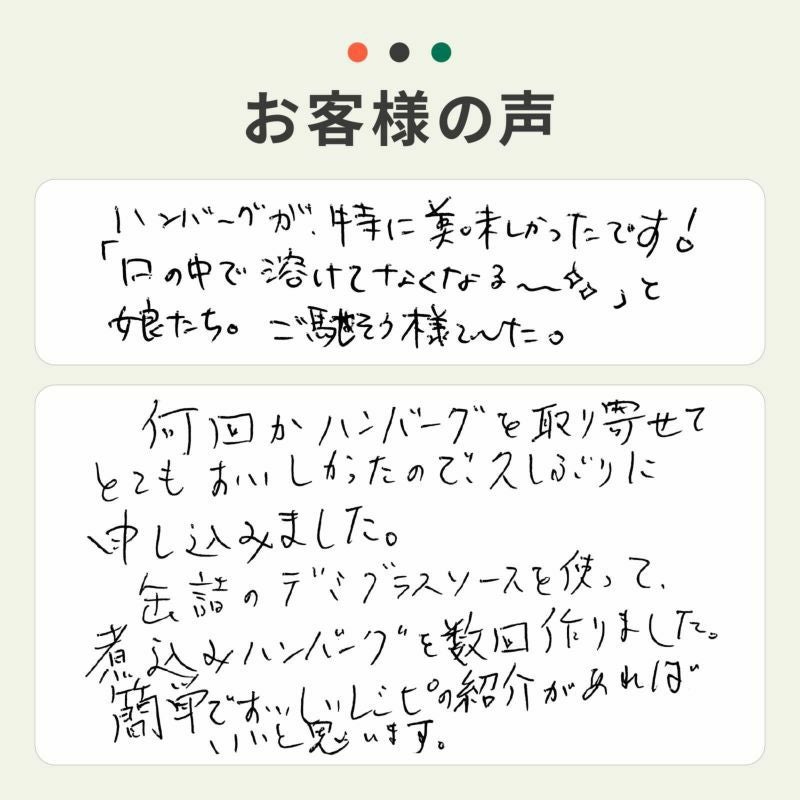 お客様の声
ハンバーグが、特に美味しかったです!
「口の中で溶けてなくなる〜✨」と
娘たち。ご馳そう様でした。
何回かハンバーグを取り寄せて
とてもおいしかったので、久しぶりに
申し込みました。
缶詰のデミグラスソースを使って、
煮込みハンバーグを数回作りました。
簡単でおいしいレシピの紹介があれば
いいと思います。